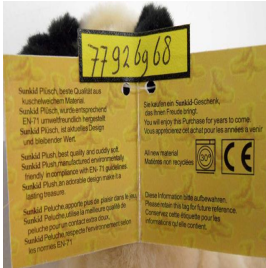 77926968
Sunkid Plüsch, beste Qualität aus
Kuschelweichem Material.
Sunkid Plüsch, wurde entsprechend
EN-71 umweltfreundlich hergestellt
Sunkid Plüsch, ist aktuelles Design
und bleibender Wert.
Sunkid Plush, best quality and cuddly soft.
Sunkid Plush, manufactured environmentally
friendly in compliance with EN-71 guidelines
Sunkid Plush, an adorable design make it a
lasting treasure.
Sunkid Peluche, apporte plus de plaisir dans le jeu
Sunkid Peluche, utilise la meilleure qualité de
peluche pour un contact extra doux.
Sunkid Peluche, respecte l'environnement selon
les normes EN-71
Sie kaufen ein Sunkid-Geschenk,
das Ihnen Freude bringt.
You will enjoy this Purchase for years to come!
Vous apprécierez cet achat pour les années à venir
All new material
Matières non recyclées
30°
CE
Diese Information bitte aufbewahren.
Please retain this tag for future reference.
Conservez cette étiquette pour les
informations ou remarques.